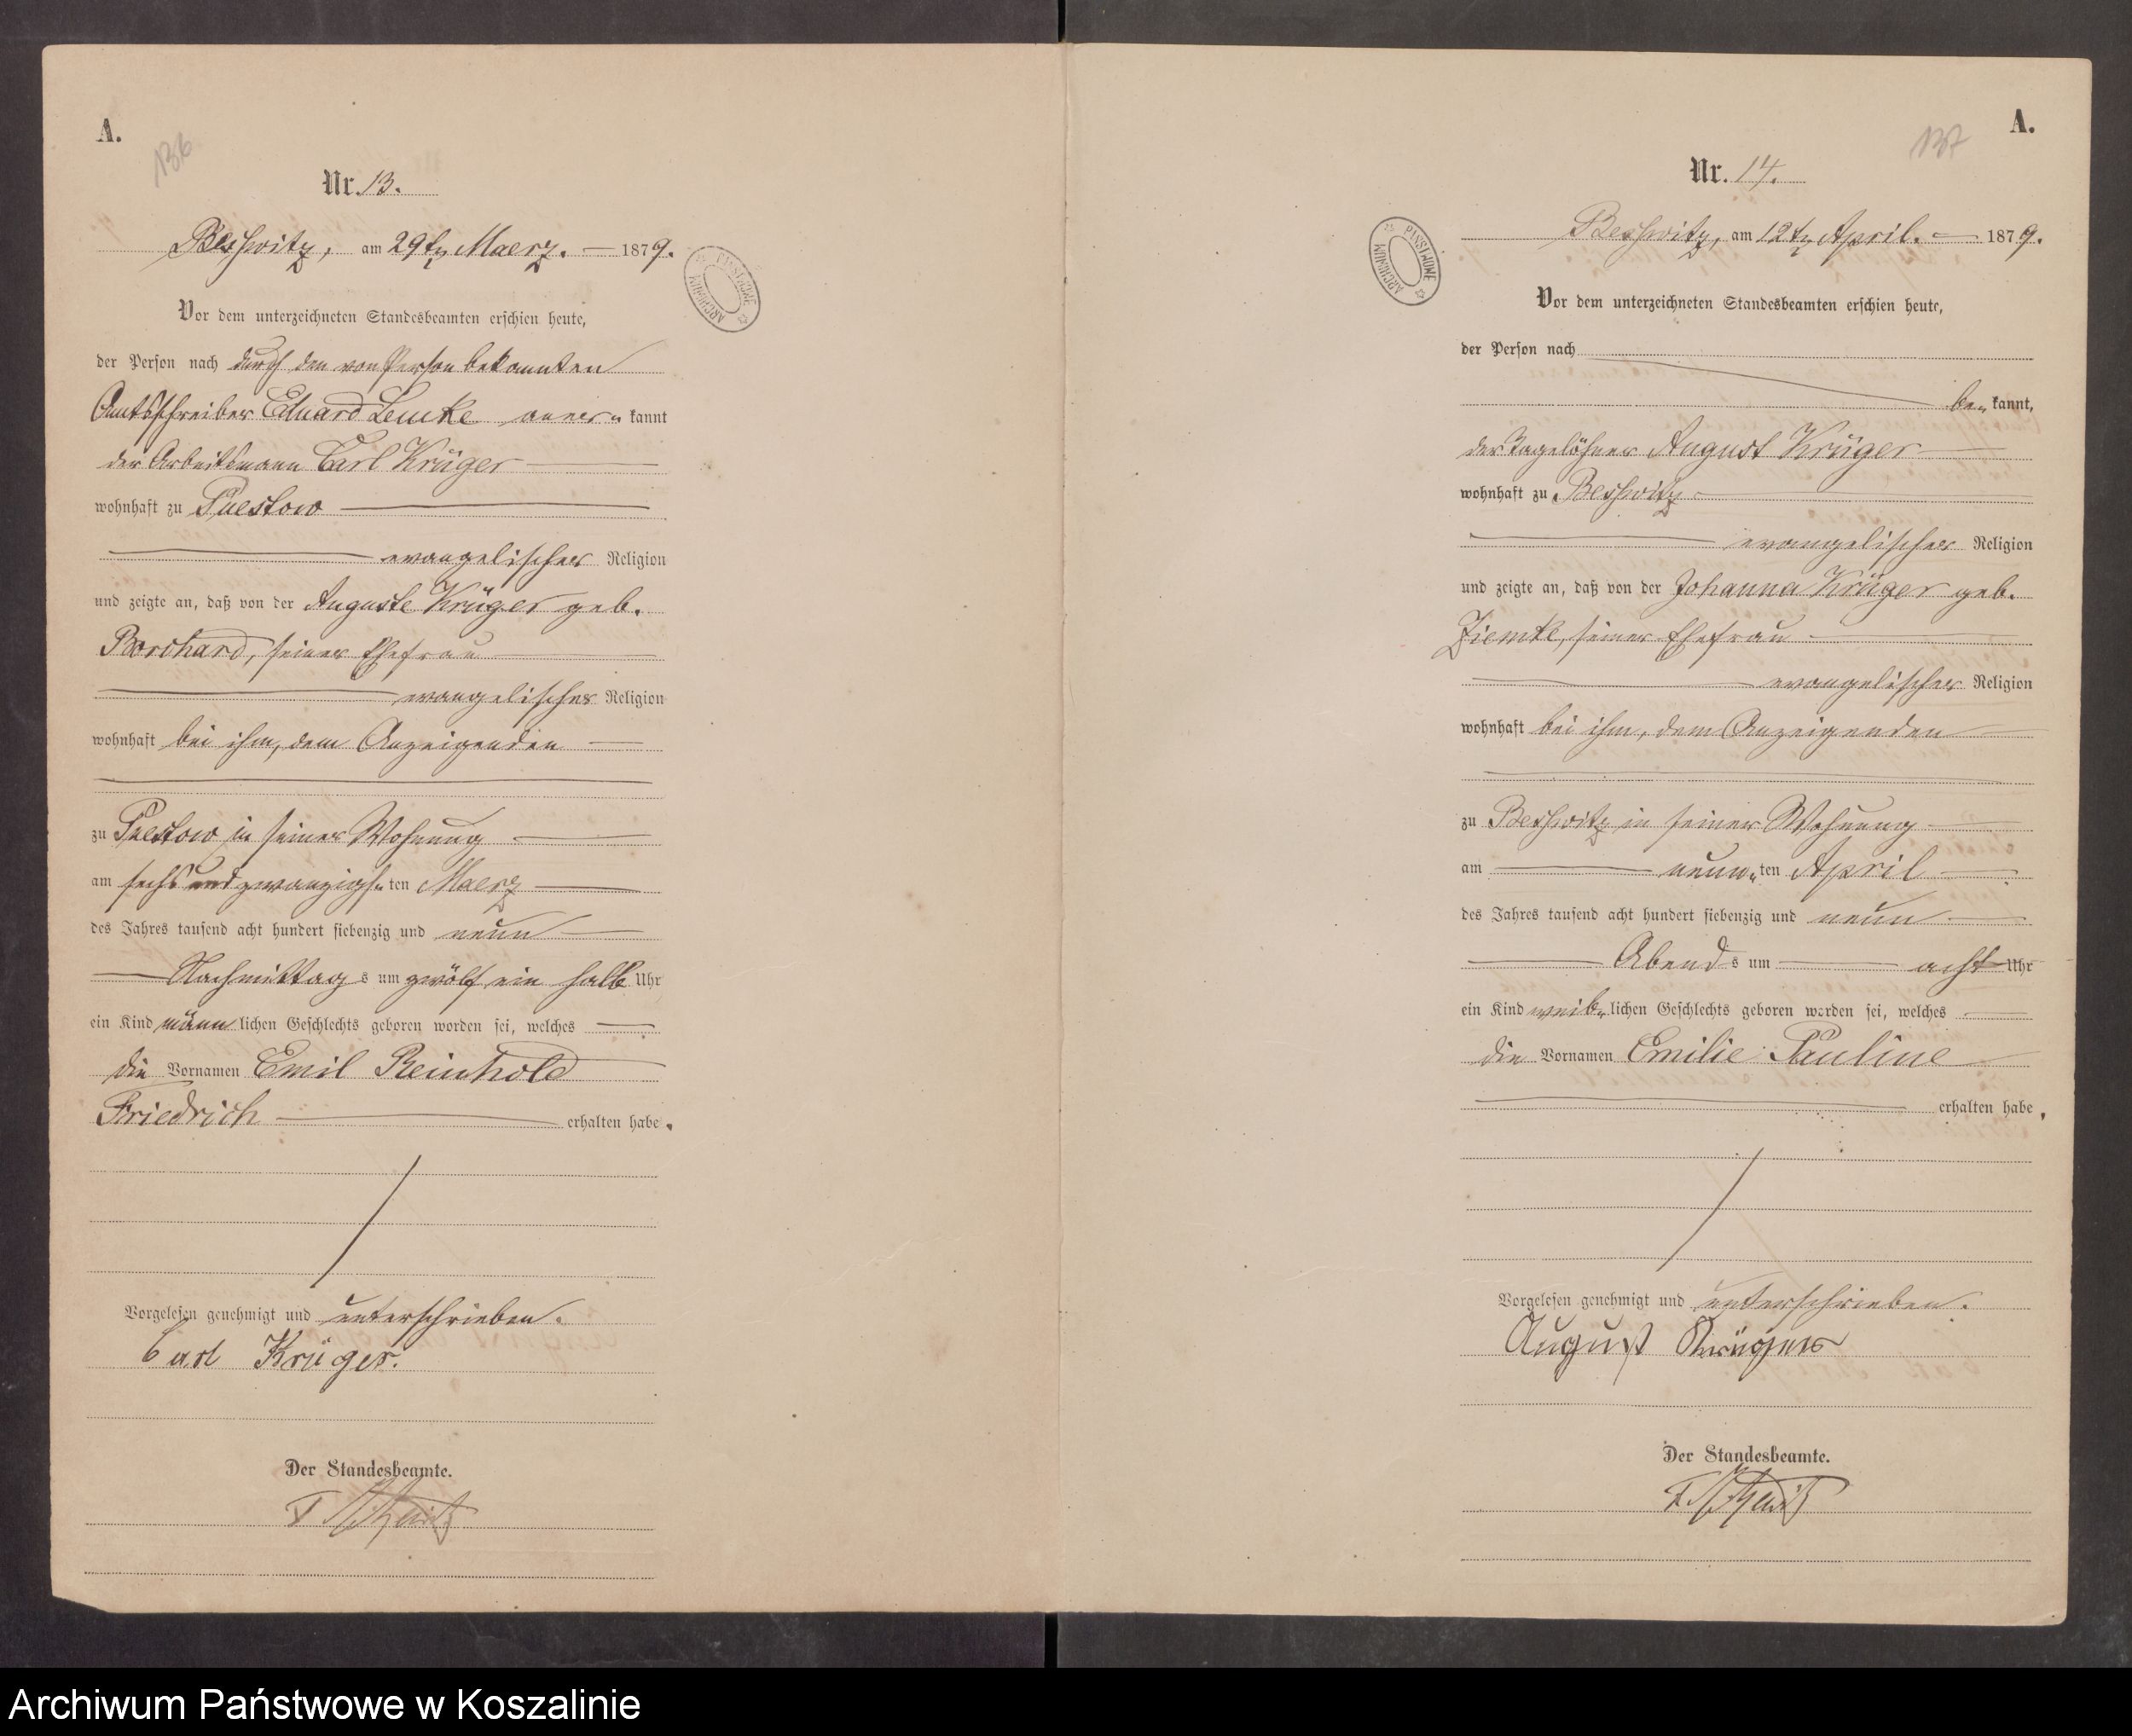 A.
136
Nr. 13.
Besswitz, am 29ten Maerz. 1879.
ARCHIWUM PAŃSTWOWE
Vor dem unterzeichneten Standesbeamten erschien heute,
der Person nach durch den von Person bekannten
Amtsschreiber Eduard Lemke aner- kannt
der Arbeitsmann Carl Krüger
wohnhaft zu Puestow
evangelischer Religion
und zeigte an, daß von der Auguste Krüger geb.
Borchard, seiner Ehefrau
evangelischer Religion
wohnhaft bei ihm, dem Anzeigenden
zu Puestow in seiner Wohnung
am sechs und zwanzigs- ten Maerz
des Jahres tausend acht hundert siebenzig und neun
Nachmittags um zwölf ein halb Uhr
ein Kind männlichen Geschlechts geboren worden sei, welches
die Vornamen Emil Reinhold
Friedrich erhalten habe.
Vorgelesen genehmigt und unterschrieben.
Carl Krüger.
Der Standesbeamte.
A.
137
Nr. 14.
Besswitz, am 12ten April. 1879.
ARCHIWUM PAŃSTWOWE
Vor dem unterzeichneten Standesbeamten erschien heute,
der Person nach
be- kannt,
der Tagelöhner August Krüger
wohnhaft zu Besswitz
evangelischer Religion
und zeigte an, daß von der Johanna Krüger geb.
Ziemke, seiner Ehefrau
evangelischer Religion
wohnhaft bei ihm, dem Anzeigenden
zu Besswitz in seiner Wohnung
am neun- ten April
des Jahres tausend acht hundert siebenzig und neun
Abends um acht Uhr
ein Kind weib- lichen Geschlechts geboren worden sei, welches
die Vornamen Emilie Pauline
erhalten habe.
Vorgelesen genehmigt und unterschrieben.
August Krüger
Der Standesbeamte.
Archiwum Państwowe w Koszalinie